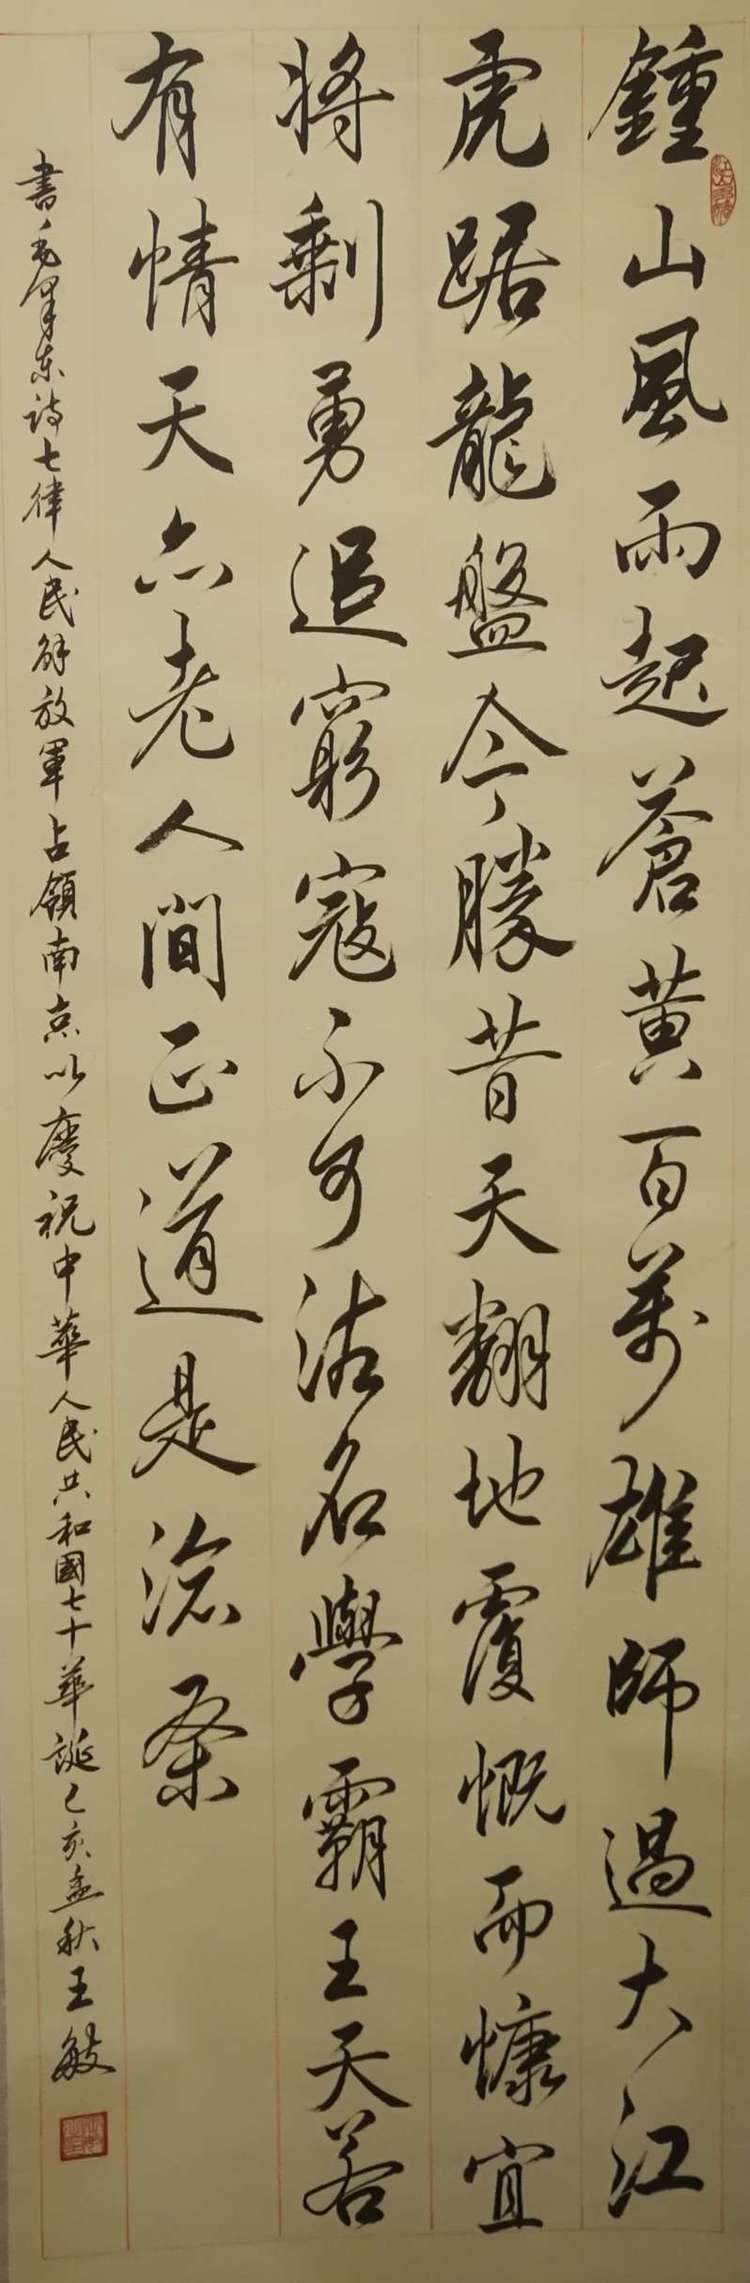 鍾山風雨起蒼黃百萬雄師過大江
虎踞龍盤今勝昔天翻地覆慨而慷宜
將剩勇追窮寇不可沽名學霸王天若
有情天亦老人間正道是滄桑
書毛澤東詩七律人民解放軍占領南京以慶祝中華人民共和國七十華誕己亥孟秋王敏